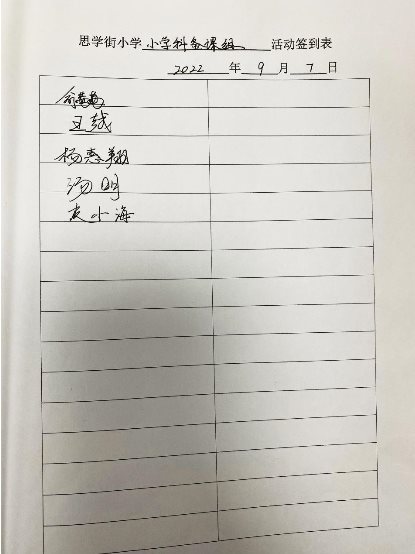 思学街小学小学科备课组活动签到表
2022年9月7日
王越
杨惠翔
汤明
袁小海